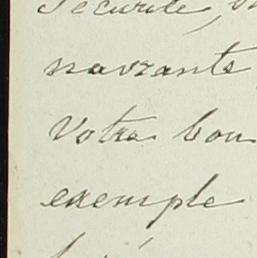 Sécurité,
navrante
Votre bon
exemple